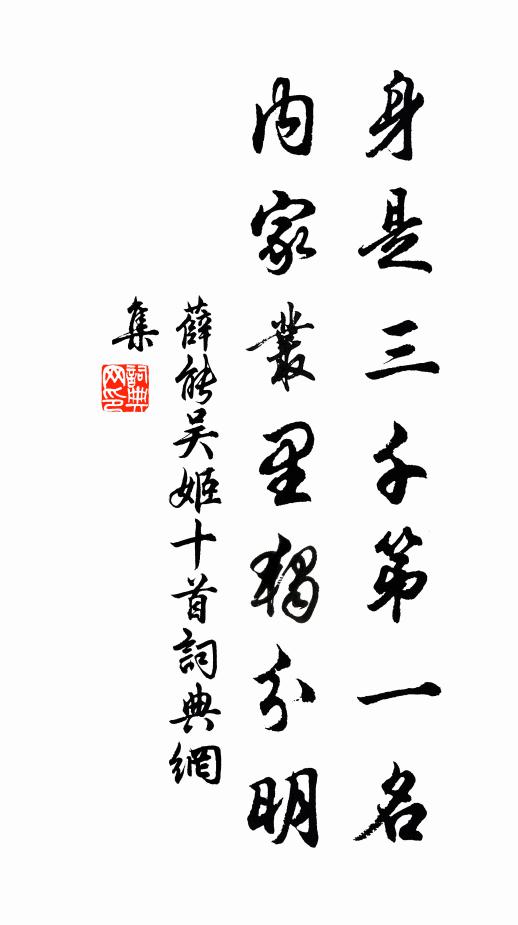 身是三千第一名
內家叢里獨分明
薛能吴姬十首詞典網
集
詞典
网印